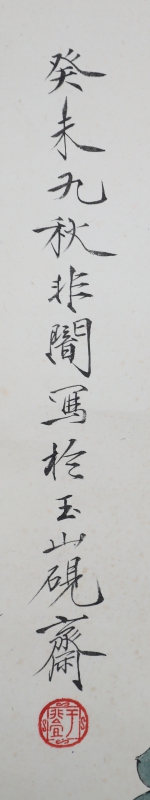 癸未九秋非闇寫於玉山硯齋